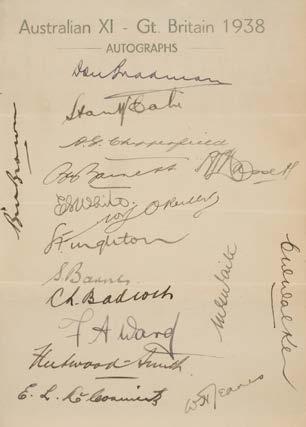 Australian XI - Gt. Britain 1938
AUTOGRAPHS
Don Bradman
Stan McCabe
A.G. Chipperfield
Ben Barnett
A.L. Hassett
E S White
W.J. O'Reilly
Bill Brown
J Fingleton
S. Barnes
C.L. Badcock
F A Ward
Fleetwood-Smith
E. L. McCormick
M.G. Waite
C.W. Walker
W H Jeanes